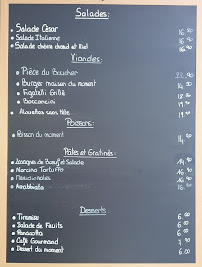 Salades:
• Salade César 16.90
• Salade Italienne 16.90
• Salade chèvre chaud et Miel 16.90
Viandes:
• Pièce du Boucher 22.90
• Burger maison du moment
• Figatelli Grillé
• Bocconcini 19.90
• Alouettes sans tête 19.90
Poissons:
• Poisson du moment
Pâtes et Gratinés:
• Lasagnes de Boeuf et Salade 14.90
• Narcina Tartuffo 16.90
• Arrabbiata
Desserts
• Tiramisu 6.00
• Salade de Fruits 6.00
• Pannacotta 6.00
• Café Gourmand 7.90
• Dessert du moment 6.00